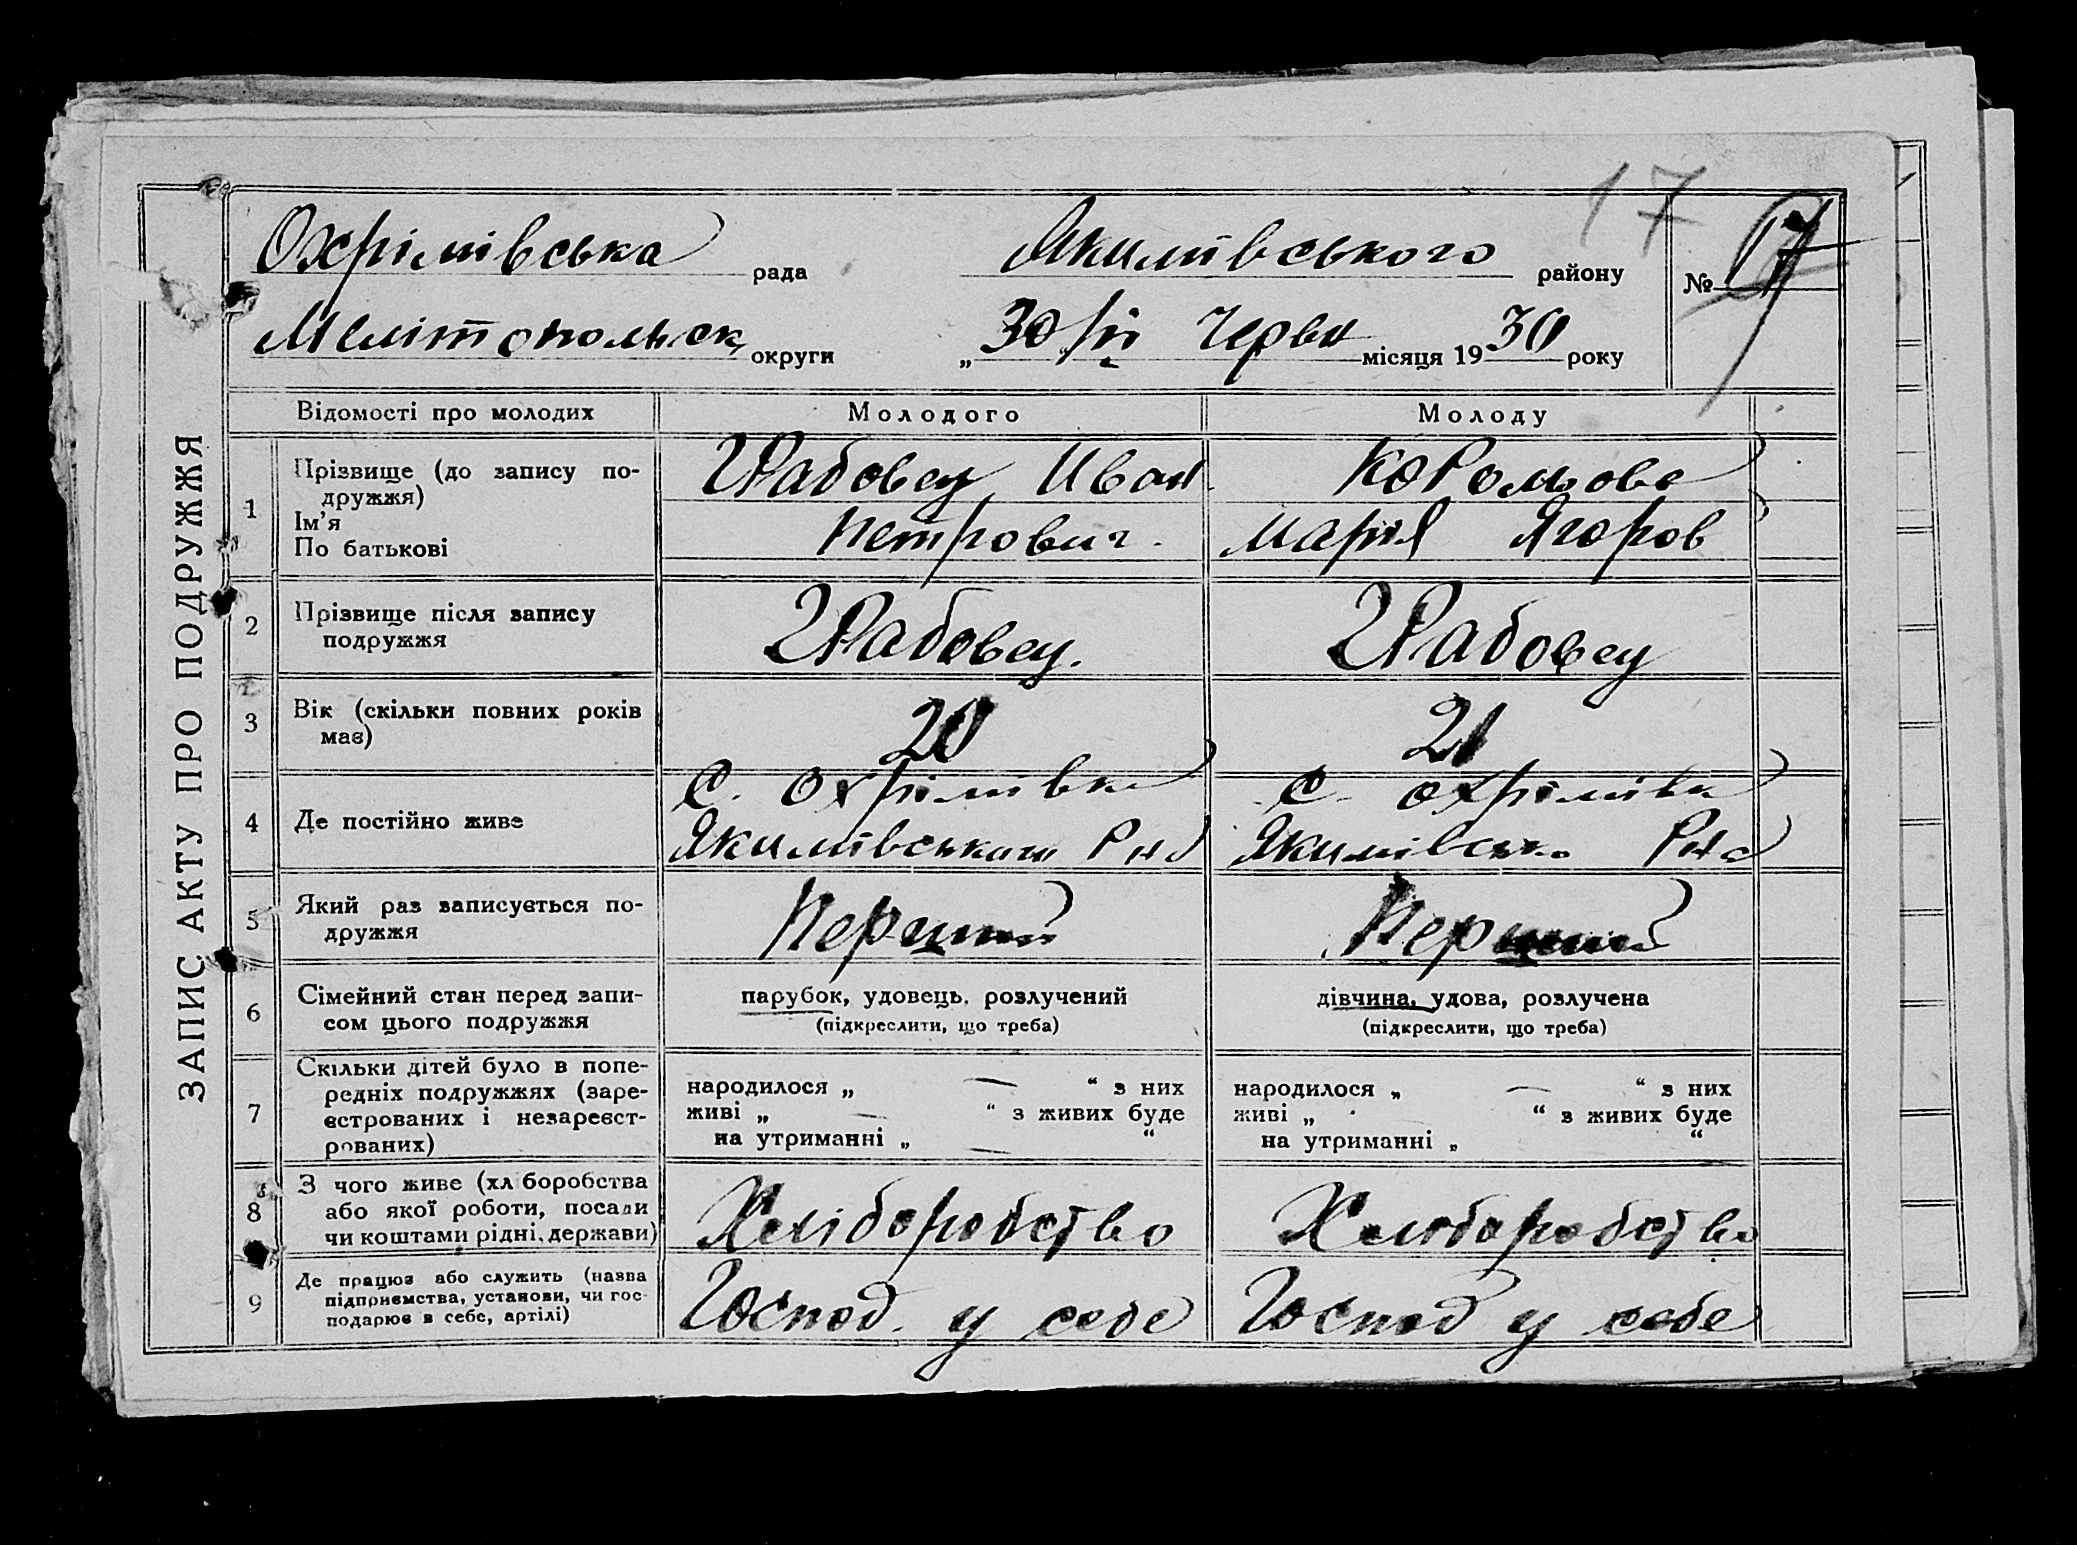 ЗАПИС АКТУ ПРО ПОДРУЖЖЯ
17
Охрімівська рада Якимівського району № 17
Мелітопольськ округи „30/VI Червн місяця 1930 року
Відомості про молодих Молодого Молоду
1 Прізвище (до запису по-
дружжя)
Ім'я
По батькові
Грабовец Иван
Петрович.
Корольова
Марія Ягоров
2 Прізвище після запису
подружжя
Грабовец.
Грабовец
3 Вік (скільки повних років
має)
20
21
4 Де постійно живе
С. Охрімівка
Якимівського Р-на
С. Охрімівка
Якимівсько Р-на
5 Який раз записується по-
дружжя
Перший
Перший
6 Сімейний стан перед запи-
сом цього подружжя
парубок, удовець, розлучений
(підкреслити, що треба)
дівчина, удова, розлучена
(підкреслити, що треба)
7 Скільки дітей було в попе-
редніх подружжях (заре-
єстрованих і незареєст-
рованих)
народилося „ — “ з них
живі „ — “ з живих буде
на утриманні „ — “
народилося „ — “ з них
живі „ “ з живих буде
на утриманні „ “
8 З чого живе (хліборобства
або якої роботи, посади
чи коштами рідні, держави)
Хеліборобство
Хеліборобство
9 Де працює або служить (назва
підприємства, установи, чи гос-
подарює в себе, артілі)
Господ. у себе
Господ у себе